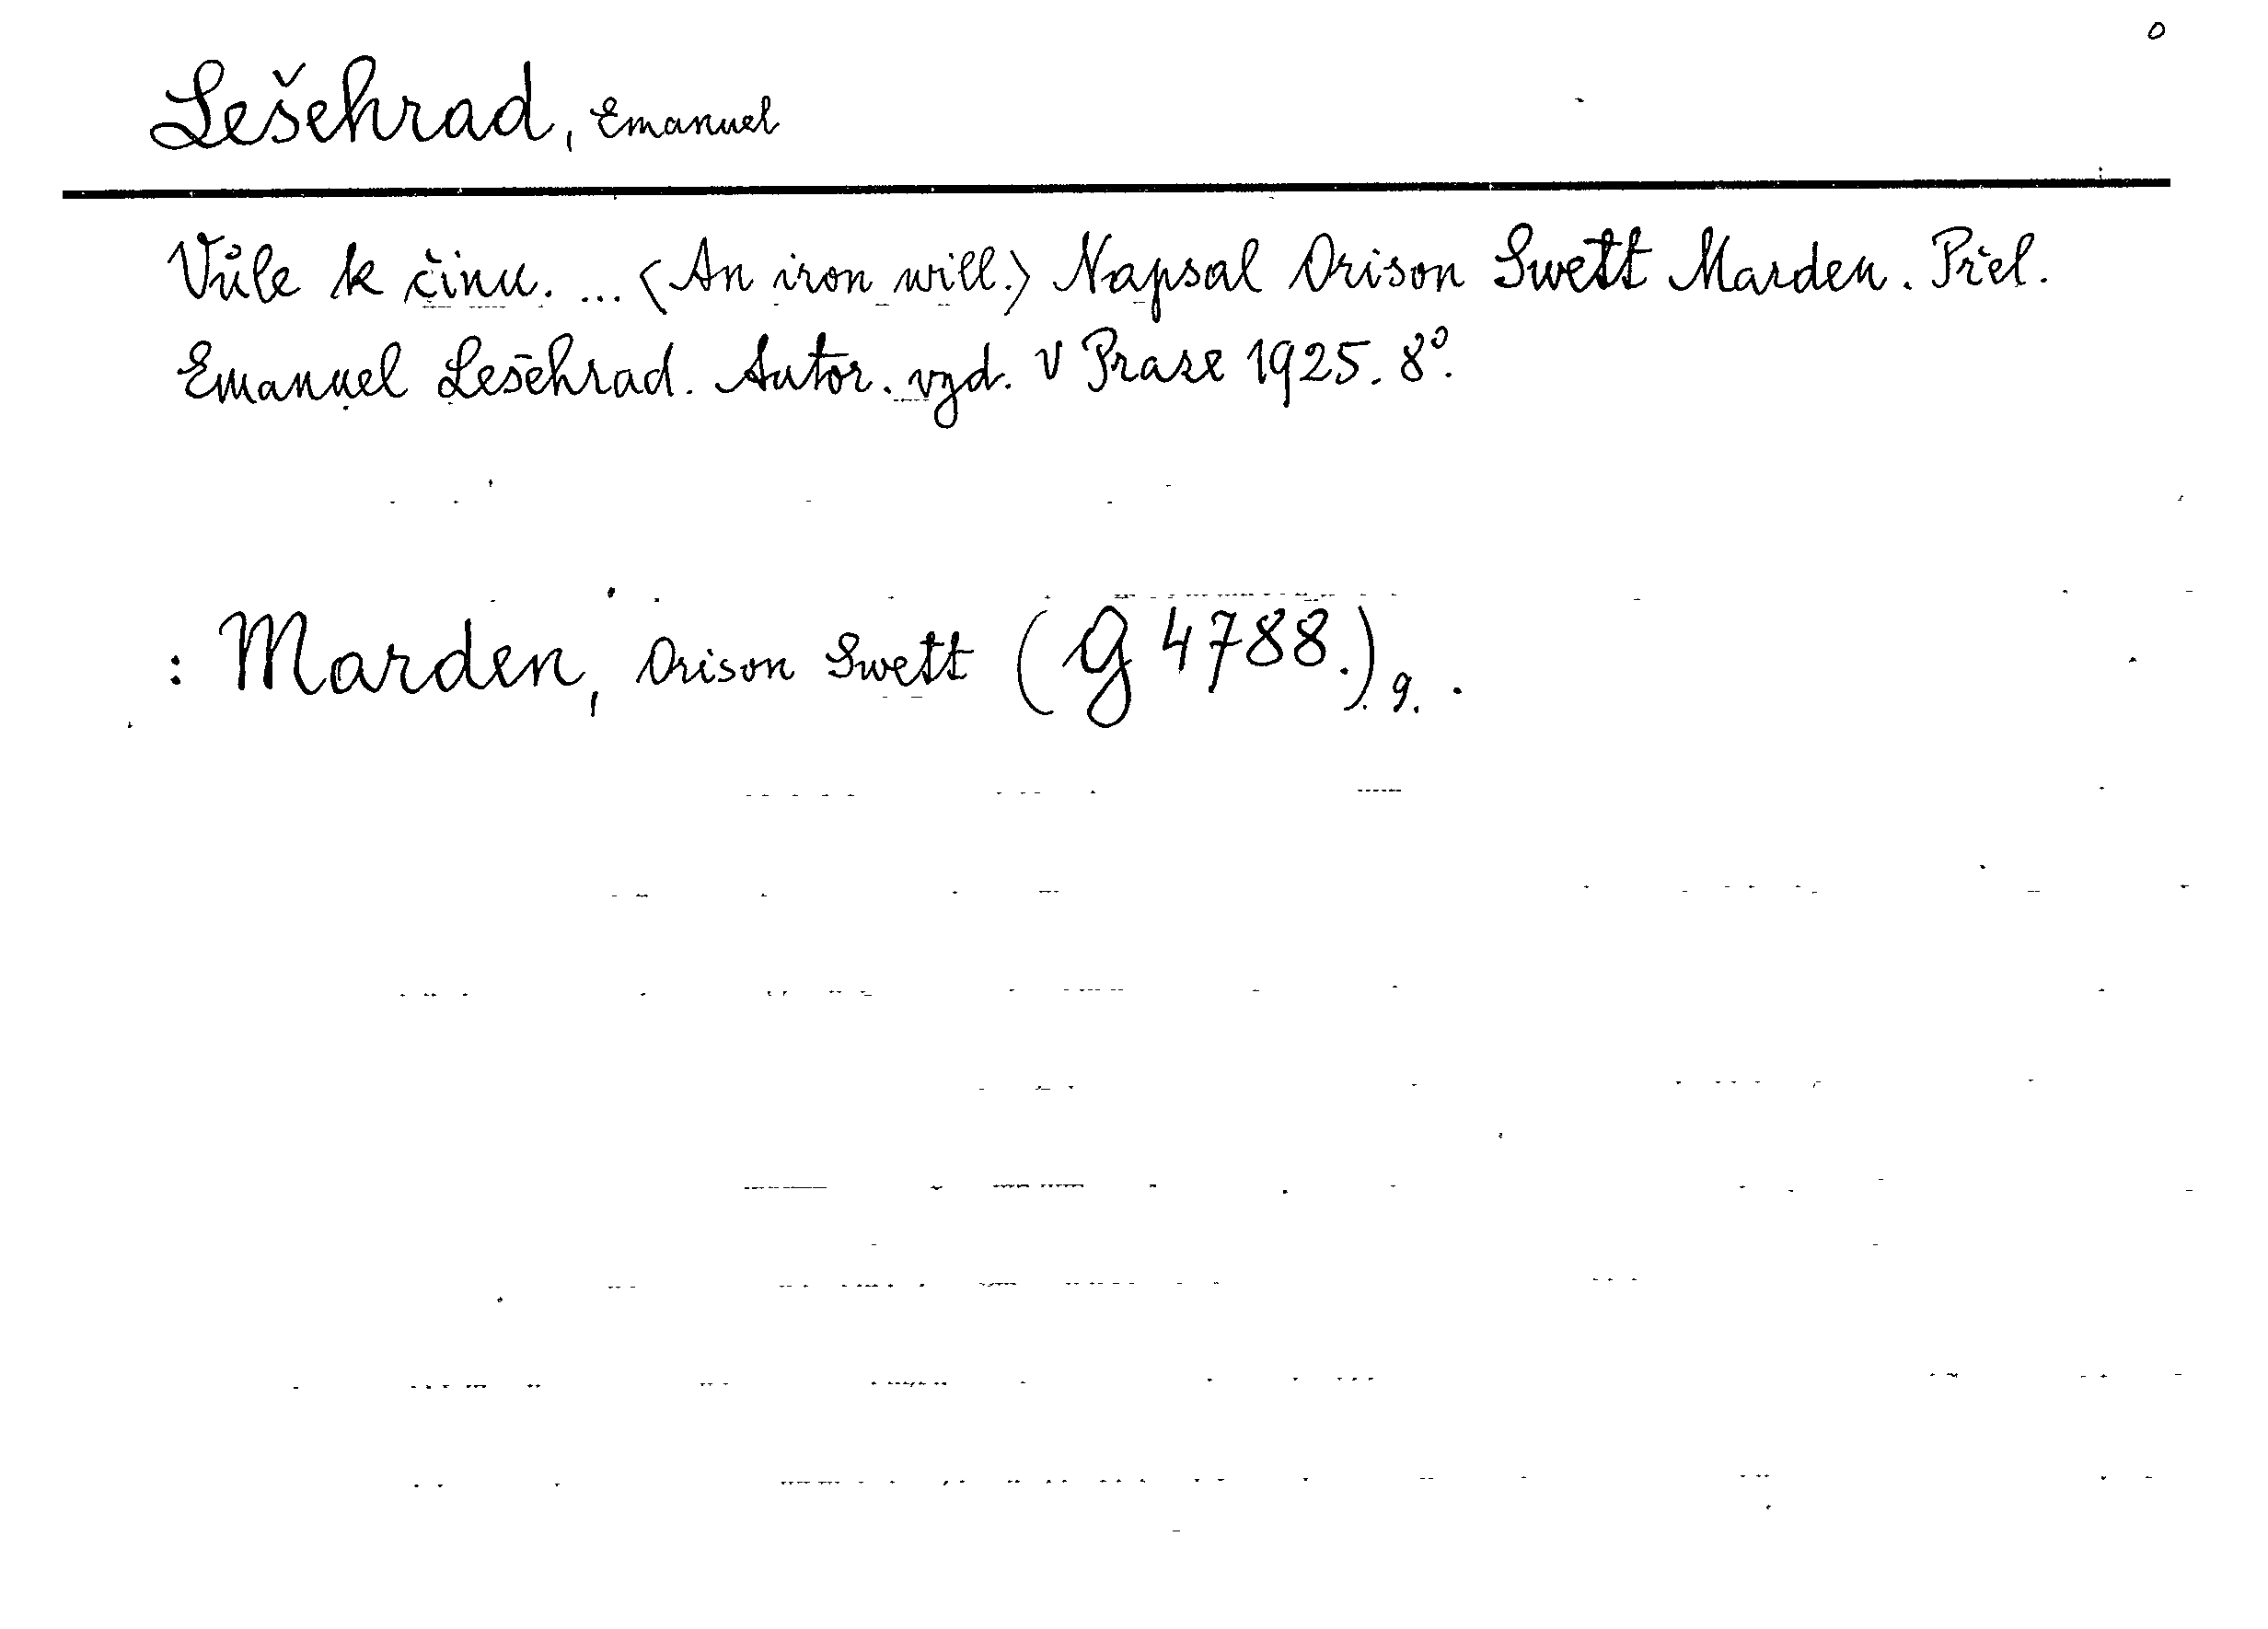 o
Lešehrad, Emanuel
Vůle k činu. ... (An iron will.) Napsal Orison Swett Marden. Přel.
Emanuel Lešehrad. Autor. vyd. V Praze 1925. 8°.
: Marden, Orison Swett (G 4788.) 9. .